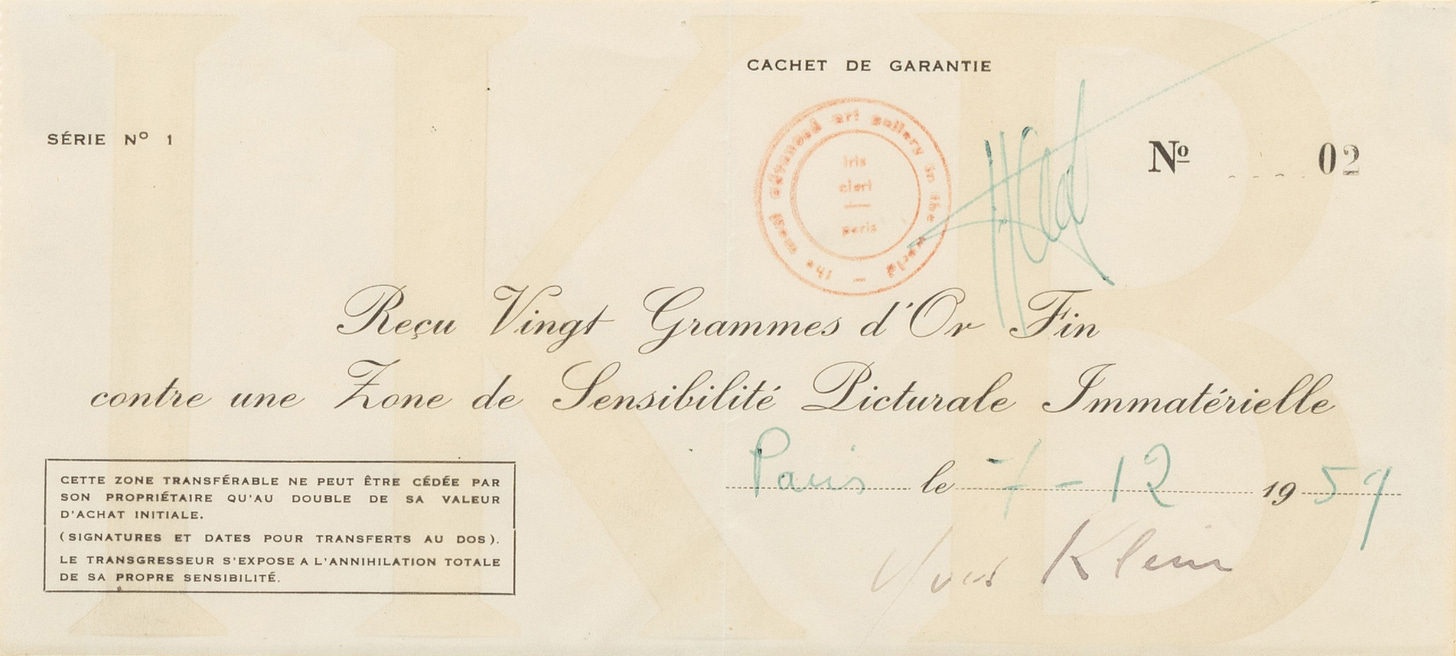 CACHET DE GARANTIE
SÉRIE Nº 1
the most advanced art gallery in the world –
iris
clert
paris
Nº 02
Reçu Vingt Grammes d'Or Fin
contre une Zone de Sensibilité Picturale Immatérielle
Paris le 7 - 12 1959
Yves Klein
CETTE ZONE TRANSFÉRABLE NE PEUT ÊTRE CÉDÉE PAR
SON PROPRIÉTAIRE QU'AU DOUBLE DE SA VALEUR
D'ACHAT INITIALE.
(SIGNATURES ET DATES POUR TRANSFERTS AU DOS).
LE TRANSGRESSEUR S'EXPOSE A L'ANNIHILATION TOTALE
DE SA PROPRE SENSIBILITÉ.
IKB